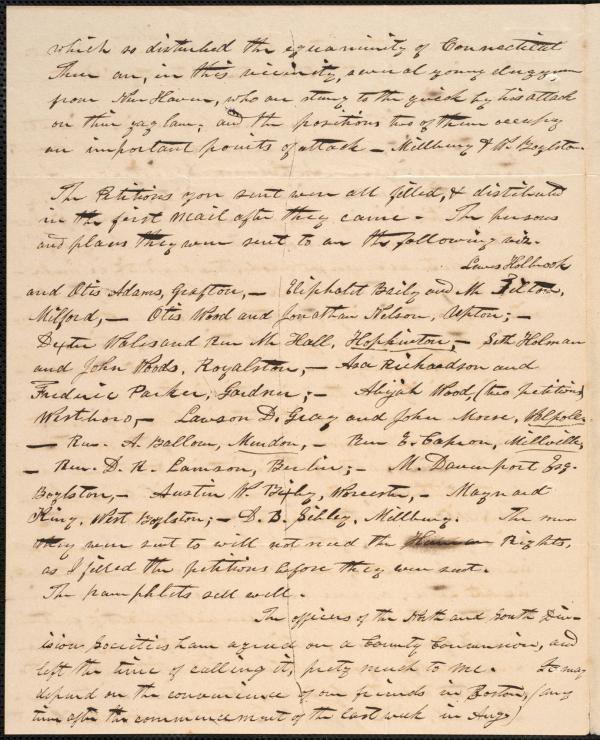 which so disturbed the equanimity of Connecticut
There are, in this vicinity, several young clergymen
from New Haven, who are stung to the quick by his attack
on their gag law; and the positions two of them occupy
are important points of attack — Millbury & W. Boylston.
The Petitions you sent were all filled, & distributed
in the first mail after they came. The persons
and places they were sent to are the following viz.
Lewis Holbrook
and Otis Adams, Grafton, — Eliphalet Baily and Mr.
Milford, — Otis Wood and Jonathan Nelson, Upton; —
Dexter Wales and Rev. Mr Hall, Hopkinton, — Seth Holman
and John Woods, Royalston, — Asa Richardson and
Frederic Parker, Gardner; — Abijah Wood, (two petitions)
Westboro, — Lawson D. Gray and John Morse, Walpole.
— Rev. A. Ballou, Mendon, — Rev E. Capron, Millville,
— Rev. D. H. Lamson, Berlin; — M. Davenport Esq.
Boylston, — Austin W. Bixby, Worcester, — Maynard
King, West Boylston; — D. B. Sibley, Millbury. The men
they were sent to will not need the Rights,
as I filled the petitions before they were sent.
The pamphlets sell well.
The officers of the North and South Div-
ision Societies have agreed on a County Convention, and
left the time of calling it, pretty much to me. It may
depend on the convenience of our friends in Boston, (any
time after the commencement of the last week in Aug.)